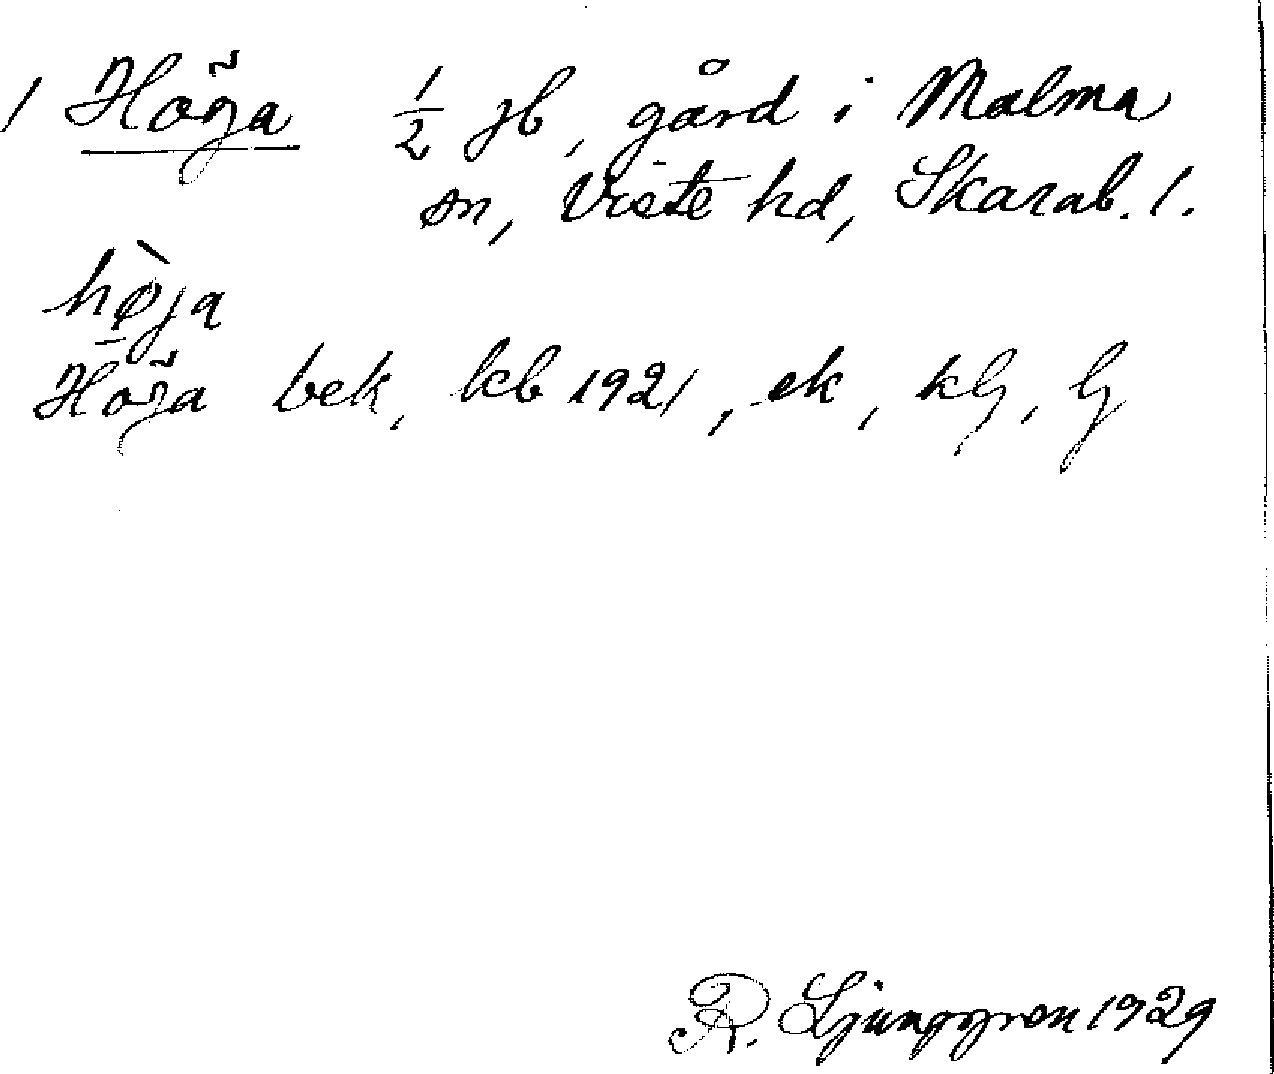 1 Höga ½ jb, gård i Malma
sn, Viste hd, Skarab. l.
hø̀ja
Höga bek, kb 1921, ek, kG, G
R. Ljunggren 1929